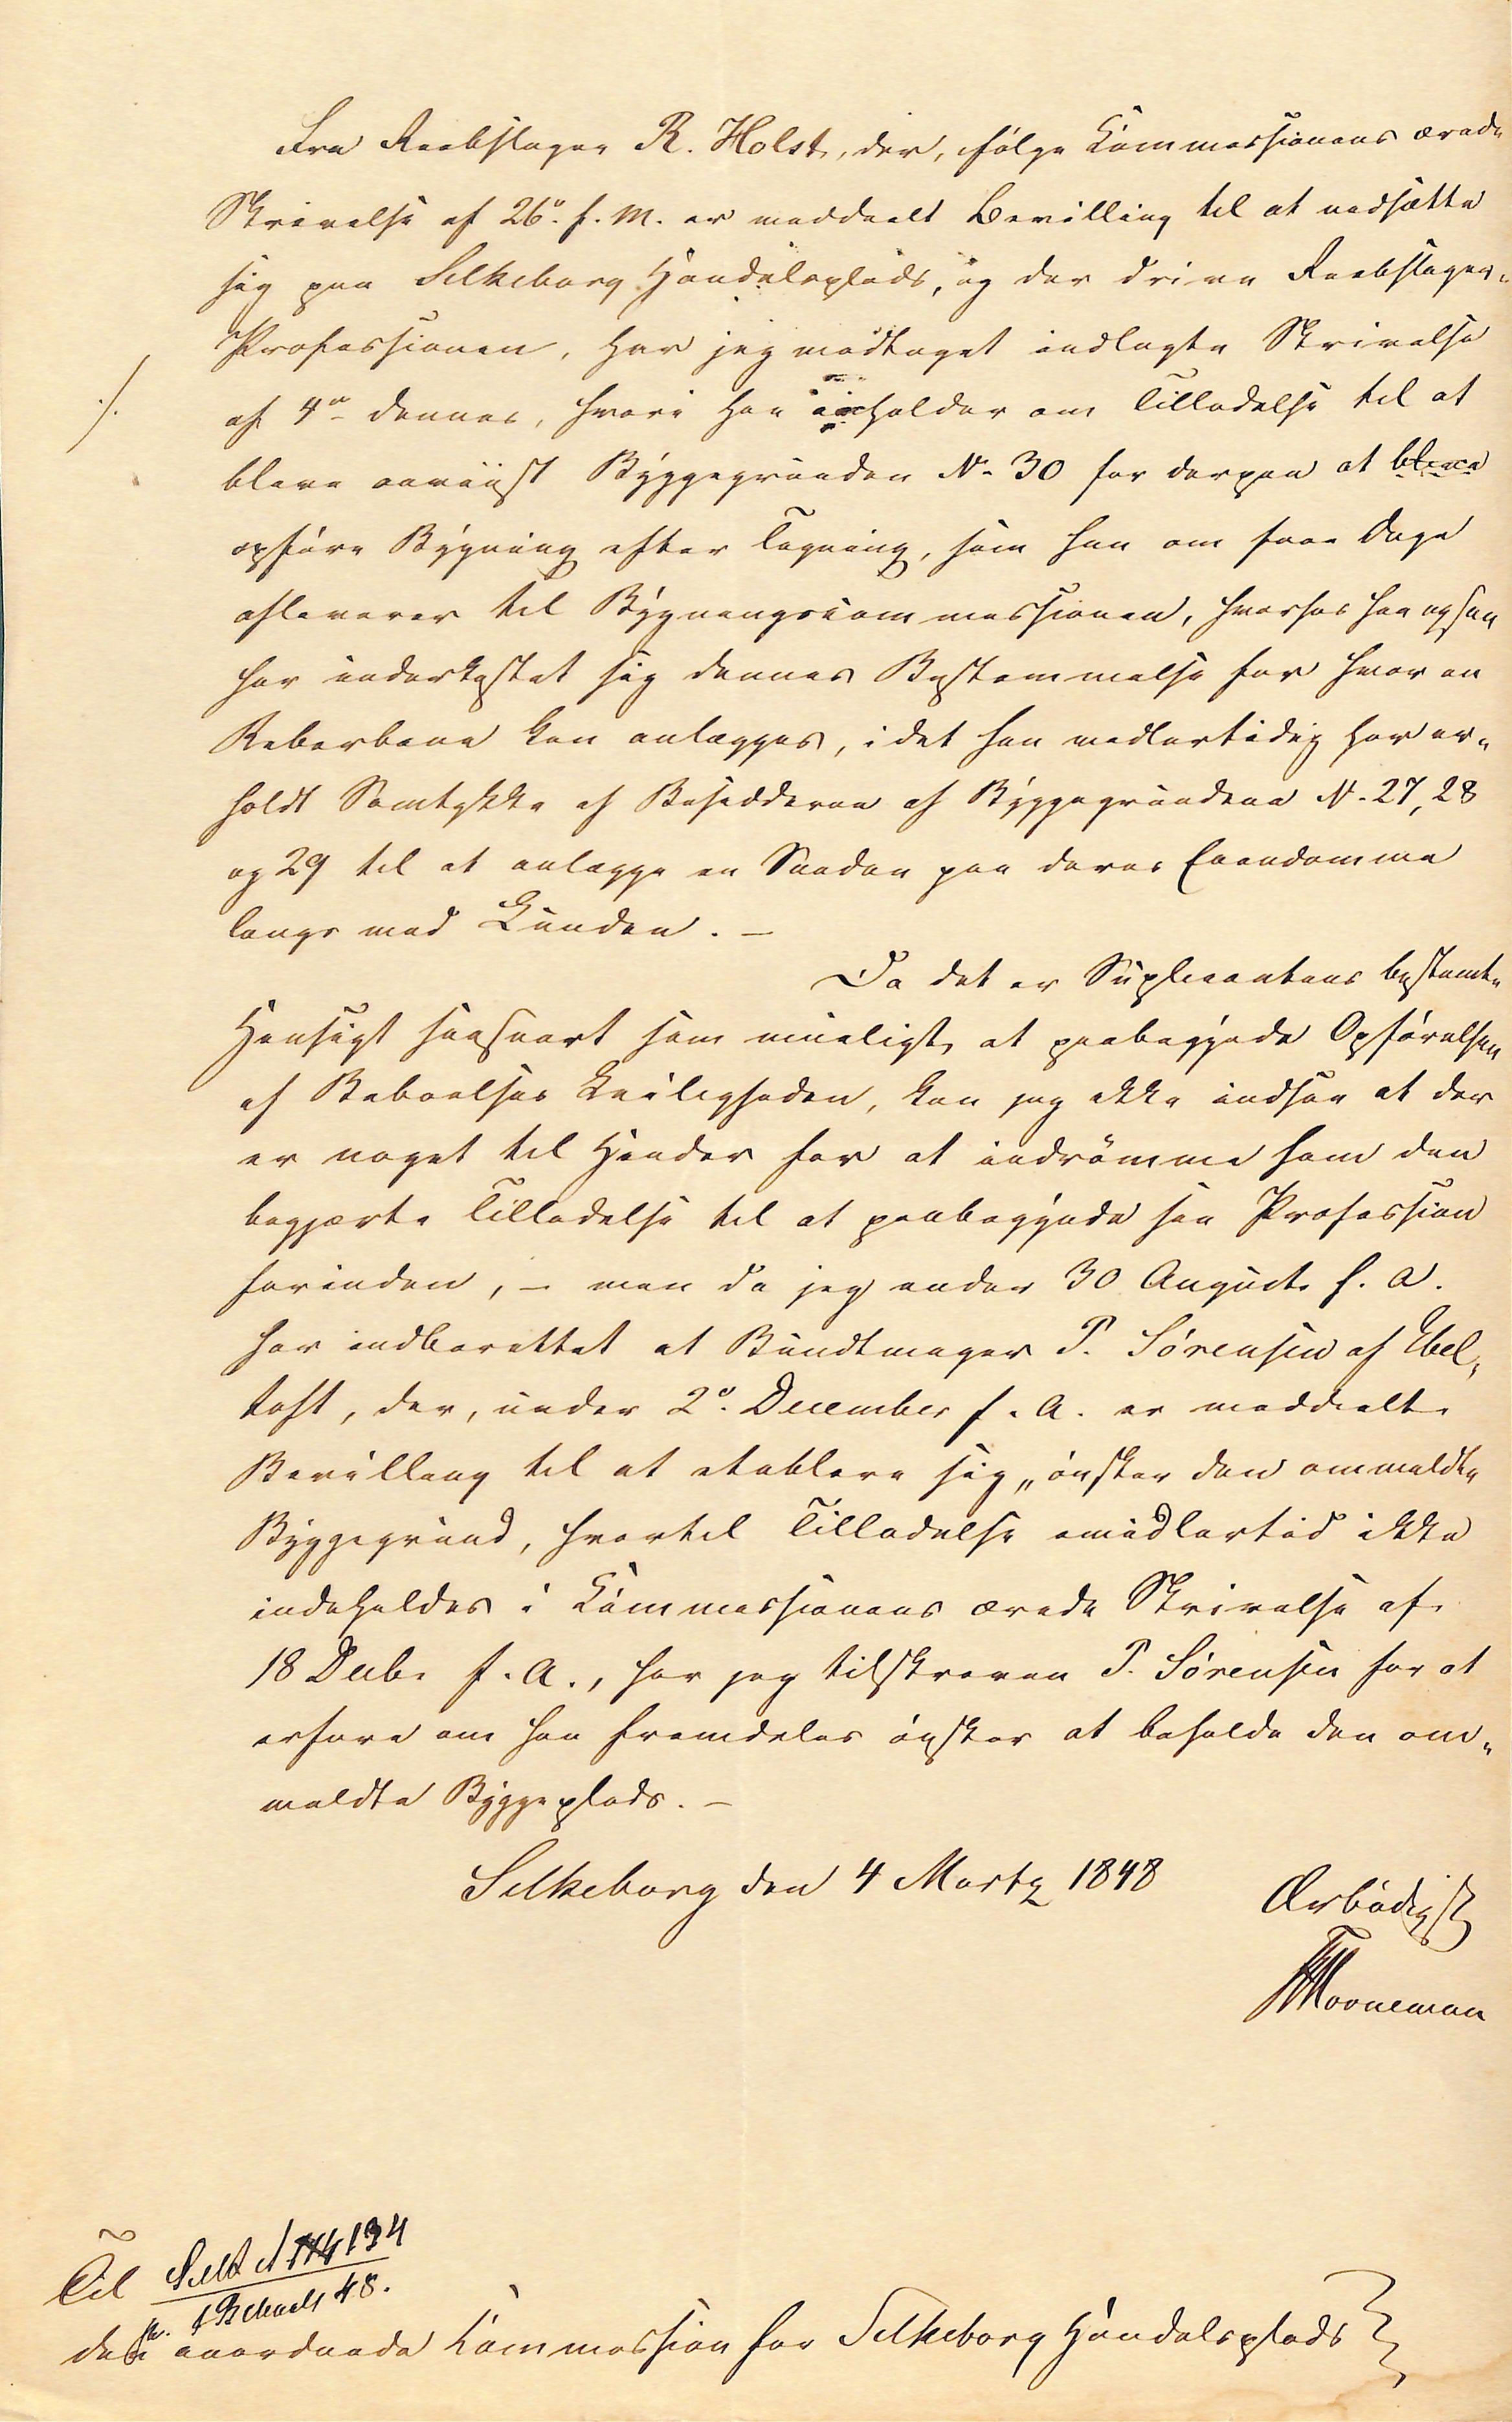 Fra Reebslager R. Holst, der, ifølge Commissionens ærede
Skrivelse af 26º. f. M. er meddeelt Bevilling til at nedsætte
sig paa Silkeborg Handelsplads, og der drive Reebslager-
Professionen, har jeg modtaget indlagte Skrivelse
./. af 4de dennes, hvori han anholder om Tilladelse til at
blive anviist Byggegrunden No 30 for derpaa at blive
opføre Bygning efter Tegning, som han om faae Dage
afleverer til Bygningscommissionen, hvorhos han ogsaa
har underkastet sig dennes Bestemmelse for hvor en
Reberbane kan anlægges, i det han midlertidig har er-
holdt Samtykke af Besidderne af Byggegrundene No. 27, 28
og 29 til at anlægge en Saadan paa deres Eiendomme
langs med Lunden. –
Da det er Suplicantens bestemte
Hensigt saasnart som mueligt, at paabegynde Opførelsen
af Beboelses Leiligheden, kan jeg ikke indsee at der
er noget til Hinder for at indrømme ham den
begjærte Tilladelse til at paabegynde sin Profession
forinden, – men da jeg under 30 August f. A.
har indberettet at Bundtmager P. Sørensen af Ebel-
toft, der, under 2º. December f. A. er meddeelt
Bevilling til at etablere sig, ønsker den ommeldte
Byggegrund, hvortil Tilladelse imidlertid ikke
indeholdes i Commissionens ærede Skrivelse af
18 Decbr f. A., har jeg tilskreven P. Sørensen for at
erfare om han fremdeles ønsker at beholde den om-
meldte Byggeplads. –
Silkeborg den 4 Martz 1848
Ærbødigst
Til
134
48.
den anordnede Commission for Silkeborg Handelsplads